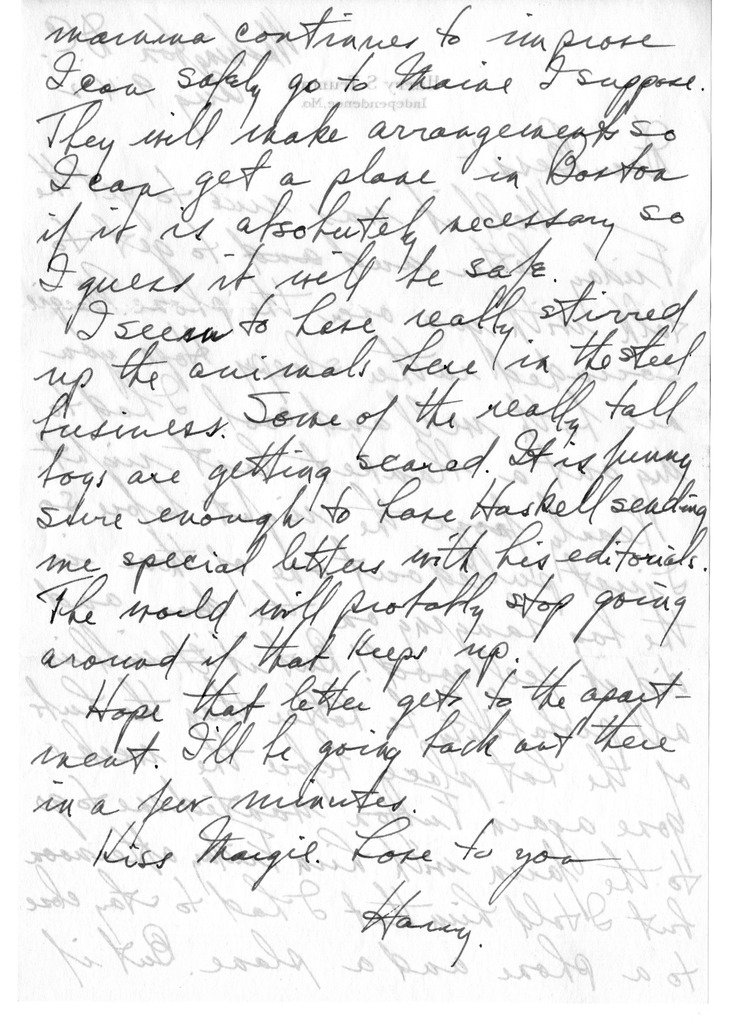 mamma continues to improve
I can safely go to Maine I suppose.
They will make arrangements so
I can get a plane in Boston
if it is absolutely necessary so
I guess it will be safe.
I seem to have really stirred
up the animals here in the steel
business. Some of the really tall
boys are getting scared. It is funny
sure enough to have Haskell sending
me special letters with his editorials.
The world will probably stop going
around if that keeps up.
Hope that letter gets to the apart-
ment. I'll be going back out there
in a few minutes.
Kiss Margie. Love to you
Harry.